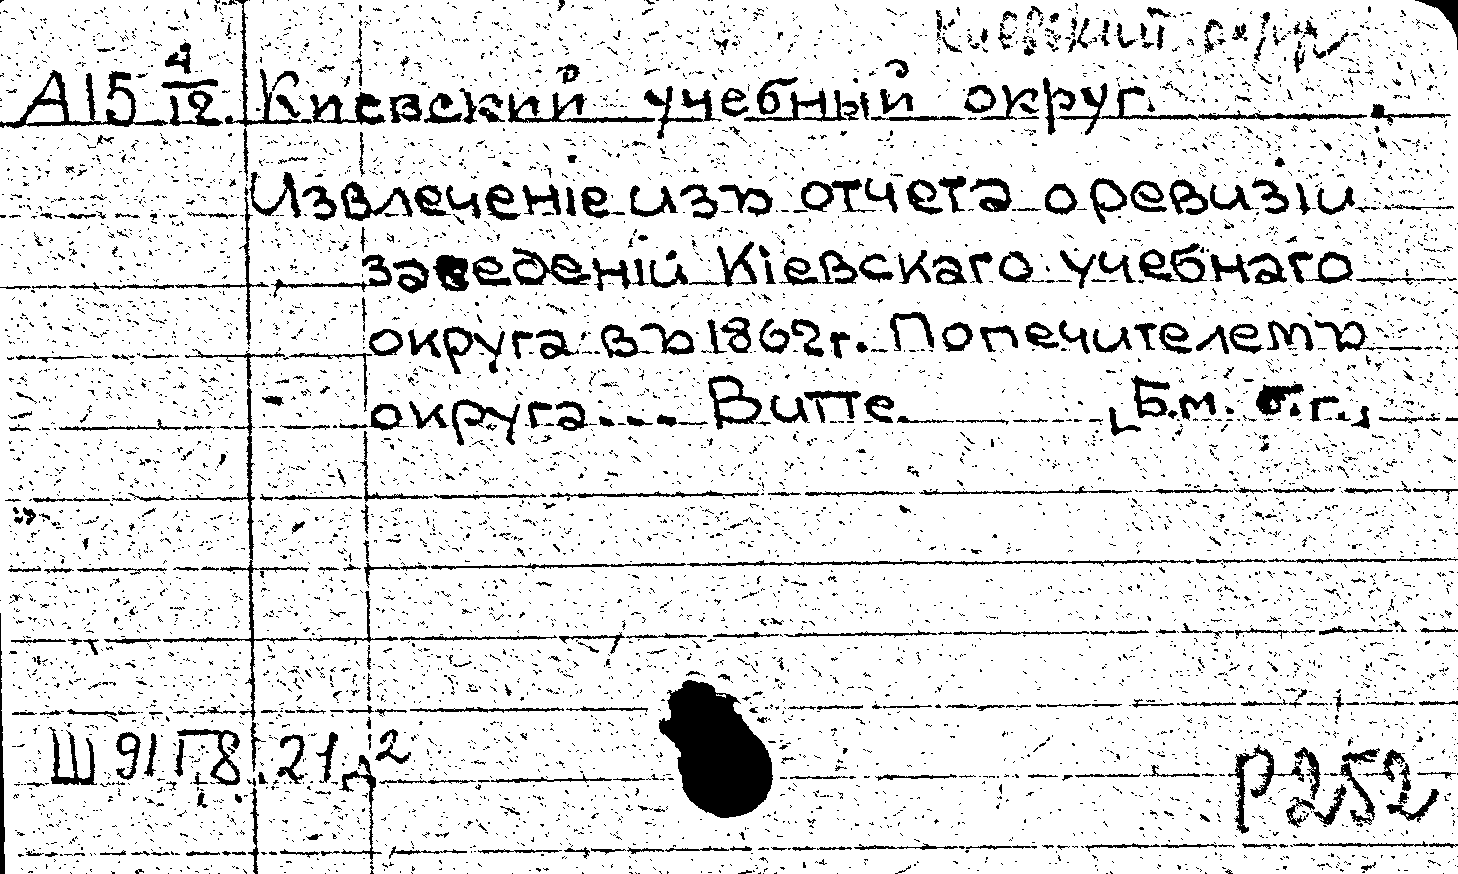 Киевский округ
А15 4/12. Киевский учебный округ.
Извлеченіе изъ отчета о ревизіи
заведеній Кіевскаго учебнаго
округа въ 1862 г. Попечителемъ
округа... Витте. [Б.м. б.г.]
Ш 91 Г8. 21д2
Р252